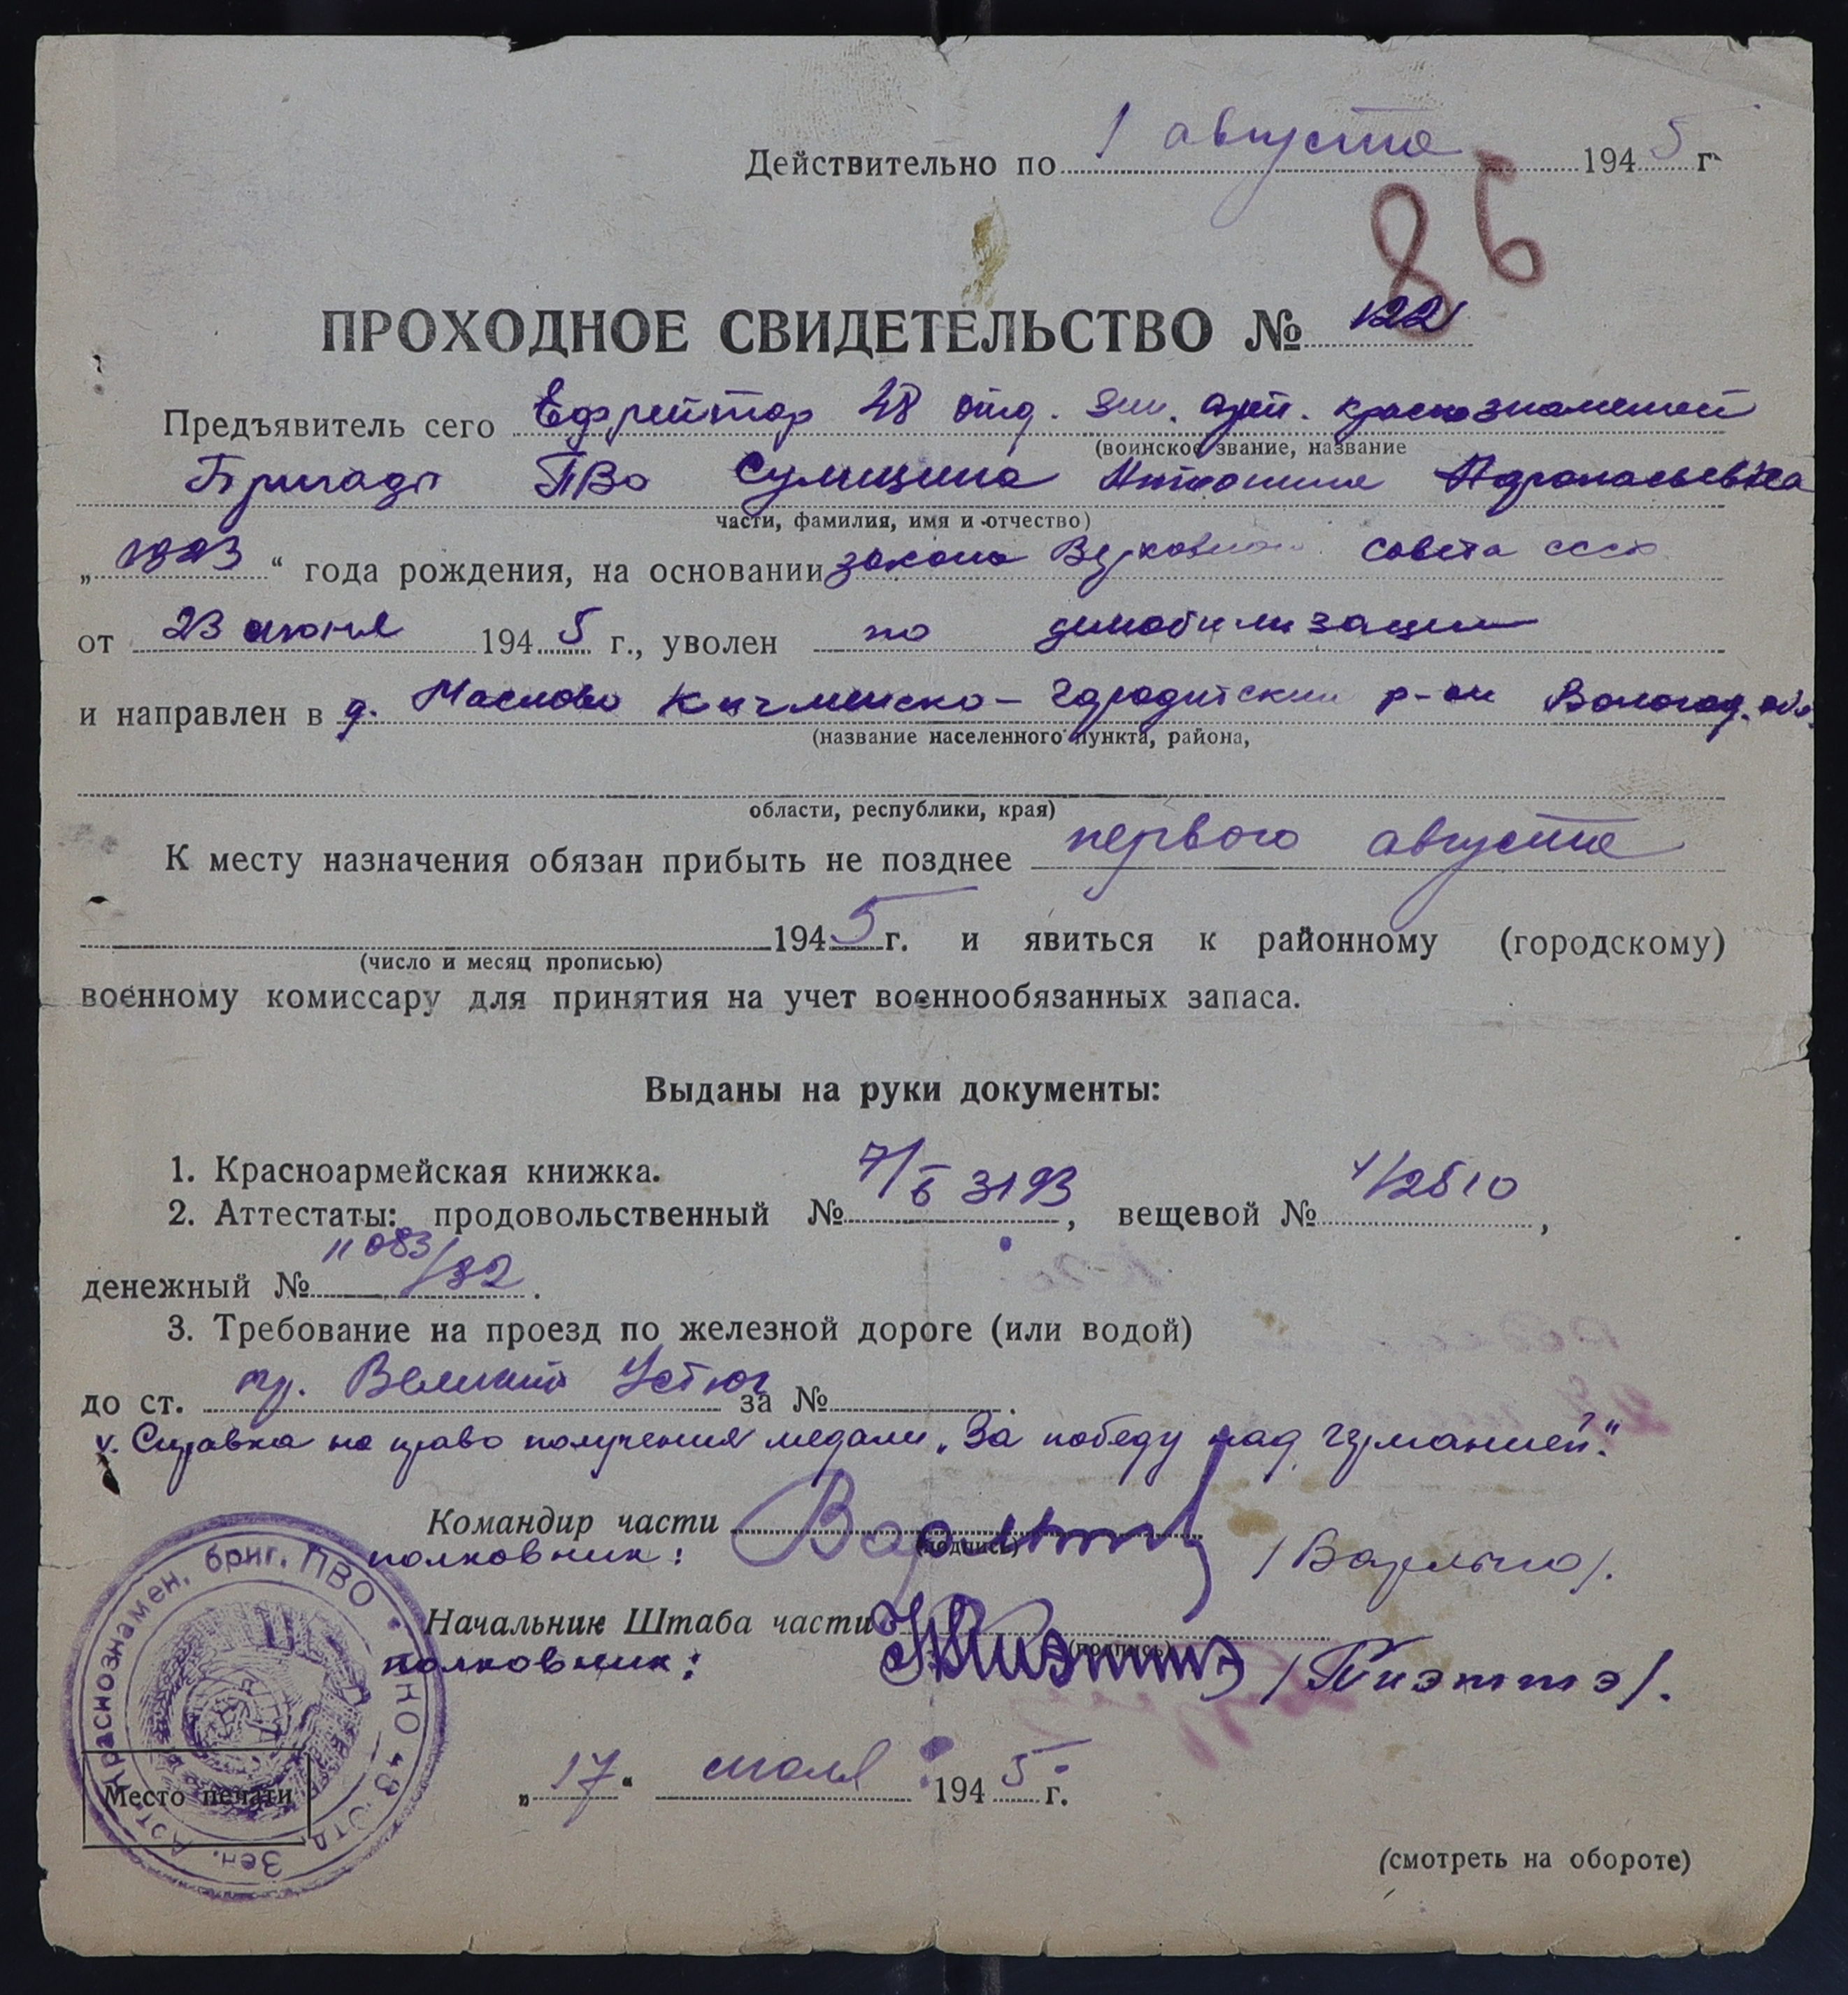 Действительно по 1 августа 1945 г.
86
ПРОХОДНОЕ СВИДЕТЕЛЬСТВО № 122
Предъявитель сего Ефрейтор 48 отд. зен. арт. краснознаменной
(воинское звание, название
Бригады ПВО Сумицина Антонина Афанасьевна
части, фамилия, имя и отчество)
„1923“ года рождения, на основании закона Верховного совета ссср
от 23 июня 1945 г., уволен по демобилизации
и направлен в д. Маслово Кичменско-Городетский р-он Вологод. обл.
(название населенного пункта, района,
области, республики, края)
К месту назначения обязан прибыть не позднее первого августа
1945 г. и явиться к районному (городскому)
(число и месяц прописью)
военному комиссару для принятия на учет военнообязанных запаса.
Выданы на руки документы:
1. Красноармейская книжка.
2. Аттестаты: продовольственный № 7/Б 3193, вещевой № 1/2810,
денежный № 11083/32.
3. Требование на проезд по железной дороге (или водой)
до ст. пр. Великий Устюг за №
4. Справка на право получения медали „За победу над германией“.
Командир части
(подпись)
полковник:
Начальник Штаба части
(подпись)
полковник: /Тиэттэ/.
Место печати
Краснознамен. бриг. ПВО * НКО 48 Отд. Зен. Арт.
„17“ июля 1945 г.
(смотреть на обороте)